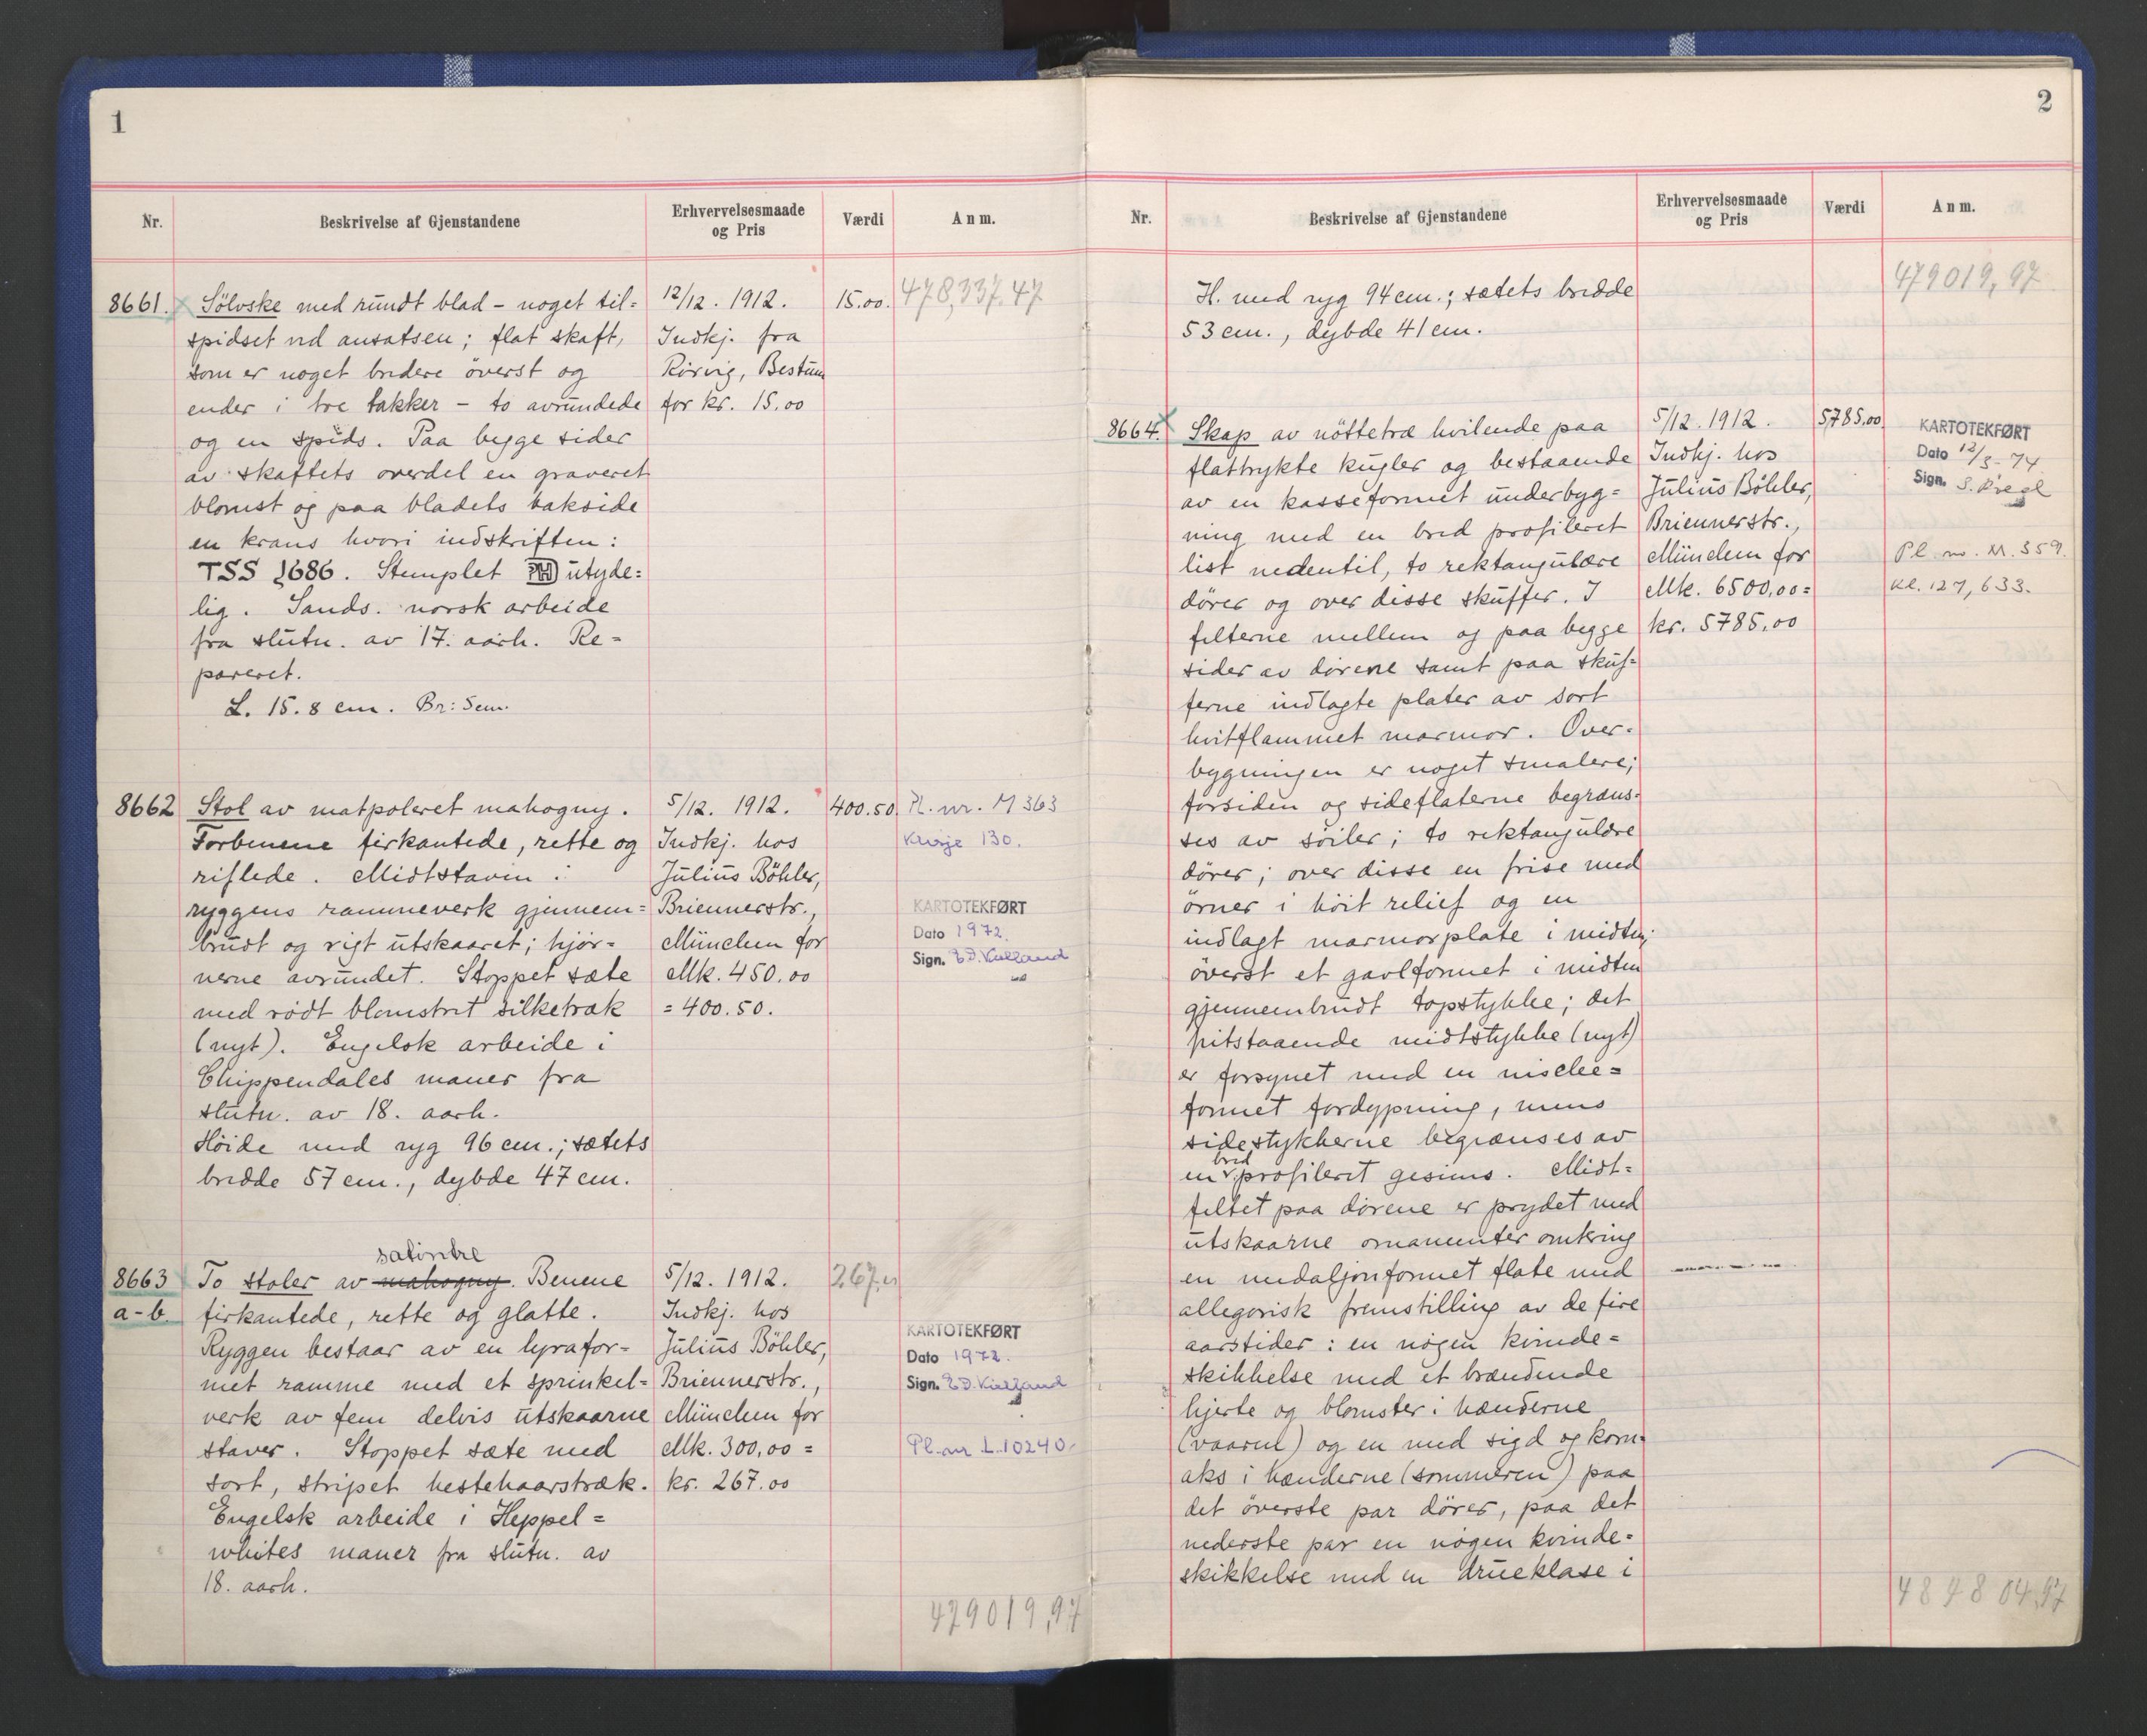 1
Nr.
Beskrivelse af Gjenstandene
Erhvervelsesmaade
og Pris
Værdi
Anm.
8661.
Sölvske med rundt blad - noget til=
spidset ved ansatsen; flat skaft,
som er noget bredere överst og
ender i tre takker - to avrundede
og en spids. Paa begge sider
av skaftets overdel en graveret
blomst og paa bladets bakside
en krans hvori indskriften:
TSS 1686. Stemplet utyde=
lig. Sands. norsk arbeide
fra slutn. av 17. aarh. Re=
pareret.
L. 15.8 cm. Br: 5cm.
12/12. 1912.
Indkj. fra
Rörvig, Bestum
for kr. 15.00
15.00.
478,337.47
8662
Stol av matpoleret mahogny.
Forbenene firkantede, rette og
riflede. Midtstaven i
ryggens rammeverk gjennem=
brudt og rigt utskaaret; hjör=
nerne avrundet. Stoppet sæte
med rödt blomstret silketræk
(nyt). Engelsk arbeide i
Chippendales maner fra
slutn. av 18. aarh.
Höide med ryg 96 cm.; sætets
bredde 57 cm., dybde 47 cm.
5/12. 1912.
Indkj. hos
Julius Böhler,
Briennerstr.,
München for
Mk. 450.00
= 400.50.
400.50.
Pl. nr. M 363
Klisje 130.
KARTOTEKFØRT
Dato 1972.
Sign. E.D. Kielland
8663
a-b.
satintre
To stoler av mahogny. Benene
firkantede, rette og glatte.
Ryggen bestaar av en lyrafor=
met ramme med et sprinkel=
verk av fem delvis utskaarne
staver. Stoppet sæte med
sort, stripet hestehaarstræk.
Engelsk arbeide i Heppel=
whites maner fra slutn. av
18. aarh.
5/12. 1912.
Indkj. hos
Julius Böhler,
Briennerstr.,
München for
Mk. 300,00 =
kr. 267.00
267.00
KARTOTEKFØRT
Dato 1972.
Sign. E.D. Kielland
Pl.nr L.10240.
479019,97
2
Nr.
Beskrivelse af Gjenstandene
Erhvervelsesmaade
og Pris
Værdi
Anm.
479019,97
H. med ryg 94 cm.; sætets bredde
53 cm., dybde 41 cm.
8664.
Skap av nöttetræ hvilende paa
flattrykte kugler og bestaaende
av en kasseformet underbyg=
ning med en bred profileret
list nedentil, to rektangulære
dörer og over disse skuffer. I
felterne mellem og paa begge
sider av dörene samt paa skuf=
ferne indlagte plater av sort
hvitflammet marmor. Over=
bygningen er noget smalere;
forsiden og sideflaterne begræns=
ses av söiler; to rektangulære
dörer; over disse en frise med
örner i höit relief og en
indlagt marmorplate i midten;
överst et gavlformet i midten
gjennembrudt topstykke; det
fritstaaende midtstykke (nyt)
er forsynet med en nische=
formet fordypning, mens
sidestykkerne begrænses av
bred
en profileret gesims. Midt=
feltet paa dörene er prydet med
utskaarne ornamenter omkring
en medaljonformet flate med
allegorisk fremstilling av de fire
aarstider: en nögen kvinde=
skikkelse med et brændende
hjerte og blomster i hænderne
(vaaren) og en med sigd og korn=
aks i hænderne (sommeren) paa
det överste par dörer, paa det
nederste par en nögen kvinde=
skikkelse med en drueklase i
5/12. 1912.
Indkj. hos
Julius Böhler,
Briennerstr.,
München for
Mk. 6500,00=
kr. 5785,00
5785,00
KARTOTEKFØRT
Dato 12/3-74
Sign.
Pl. nr. M. 359.
Kl. 127, 633.
484804,97